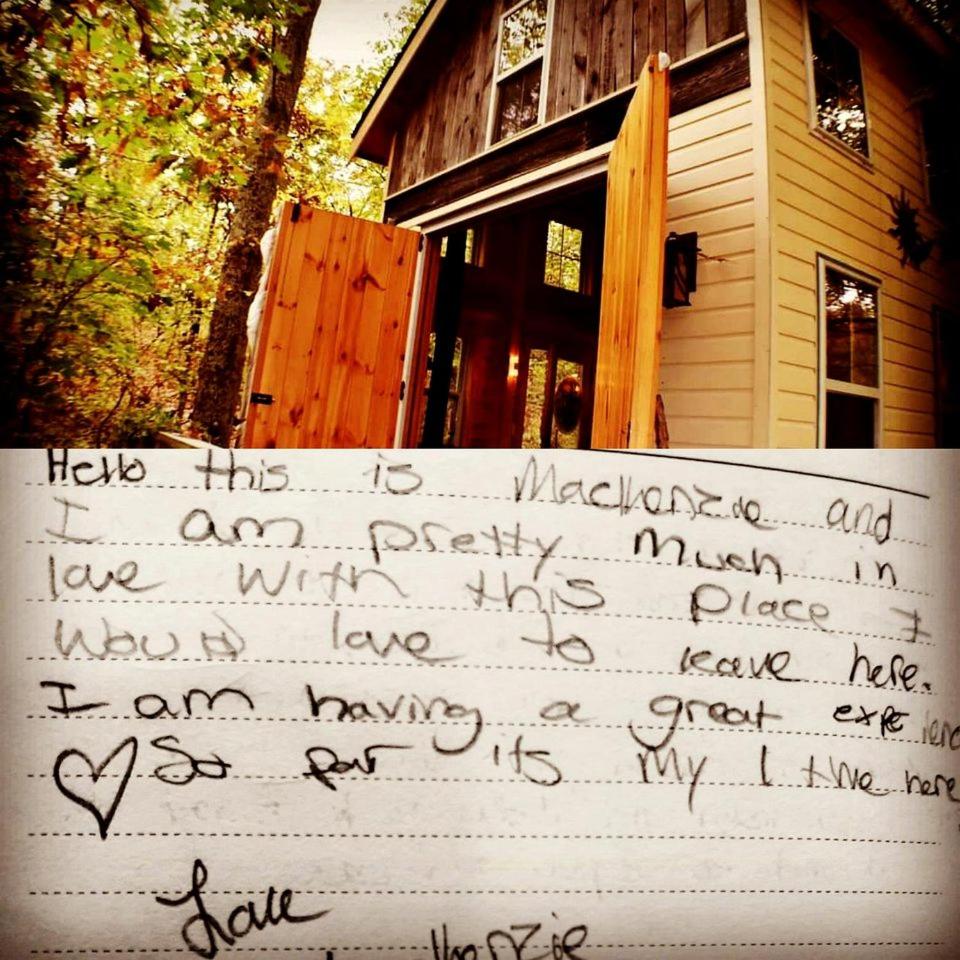 Hello this is Mackenzie and
I am pretty much in
love with this place I
Would love to leave here.
I am having a great experienc
So far its my 1 time here
Love
kenzie